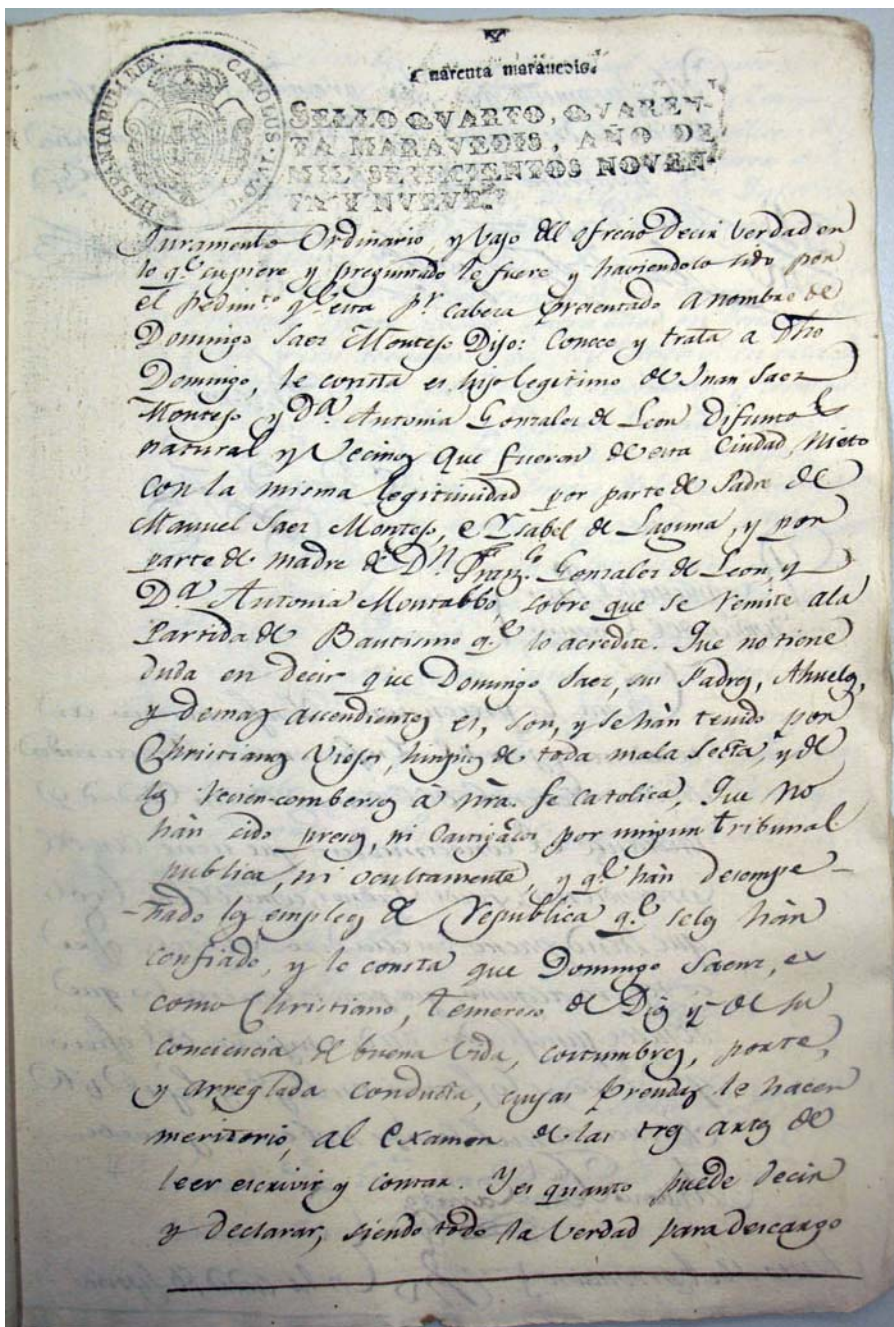 HISPANIARUM REX. CAROLUS. IV. D. G.
Quarenta marauedis.
SELLO QVARTO, QVAREN-
TA MARAVEDIS, AÑO DE
MIL SETECIENTOS NOVEN-
TA Y NUEVE.
Juramento Ordinario, y vajo del ofrecio Decir verdad en
lo q.e supiere y preguntado le fuere y haviendolo sido por
el pedim.to q.e esta p.r cabeza presentado a nombre de
Domingo Saez Montejo Dijo: Conoce y trata a Dho
Domingo, le consta es hijo legitimo de Juan Saez
Montejo y D.a Antonia Gonzales de Leon difuntos
natural y Vecinos que fueron de esta Ciudad, Nieto
con la misma legitimidad por parte de Padre de
Manuel Saez Montejo, e Ysabel de Laguna, y por
parte de madre de D.n Fran.co Gonzales de Leon, y
D.a Antonia Montabbo, sobre que se remite ala
Partida de Bautismo q.e lo acredite. Que no tiene
duda en decir que Domingo Saez, sus Padres, Abuelos,
y demas ascendientes es, son, y se hàn tenido por
Christianos Viejos, limpios de toda mala Secta, y de
los recien-combersos à nra. fe catolica, Que no
hàn sido presos, ni castigados por ningun tribunal
publica, ni ocultamente, y q.e hàn desempe-
-ñado los empleos de Republica q.e selos hàn
confiado, y le consta que Domingo Saenz, es
como Christiano, temeroso de Dios y de su
conciencia de buena vida, costumbres, porte,
y arreglada conducta, cuyas prendas le hacen
meritorio, al examen de las tres artes de
leer escrivir y contar. Y es quanto puede decir
y declarar, siendo todo la verdad para descargo